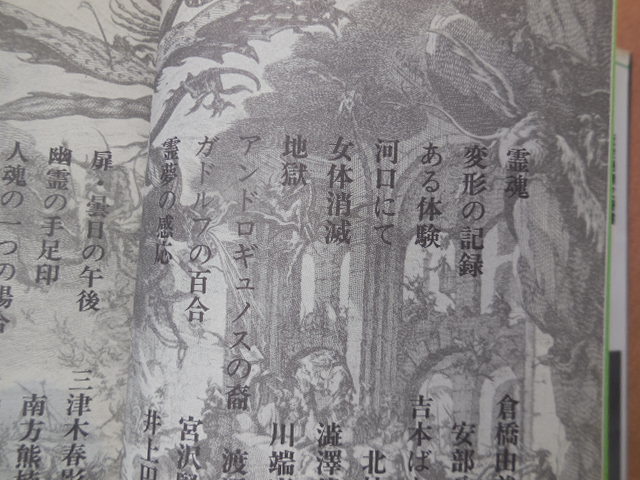 霊魂 倉橋由美
変形の記録 安部
ある体験 吉本ば
河口にて 北
女体消滅 澁澤
地獄 川端
アンドロギュノスの裔 渡
ガドルフの百合 宮沢
霊夢の感応 井上円
扉・曇日の午後 三津木春影
幽霊の手足印 南方熊楠
人魂の一つの場合